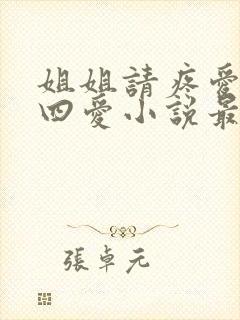 姐姐請疼愛
四愛小說最
張卓元